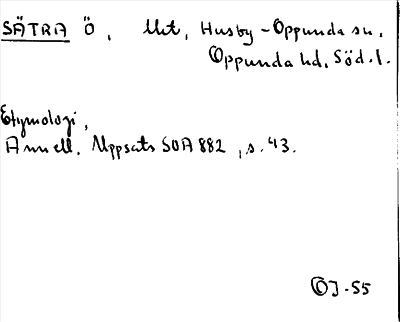 SÄTRA Ö, Unt, Husby-Oppunda sn,
Oppunda hd, Söd.l.
Etymologi,
Annell, Uppsats SOA 882, s. 43.
OJ-55